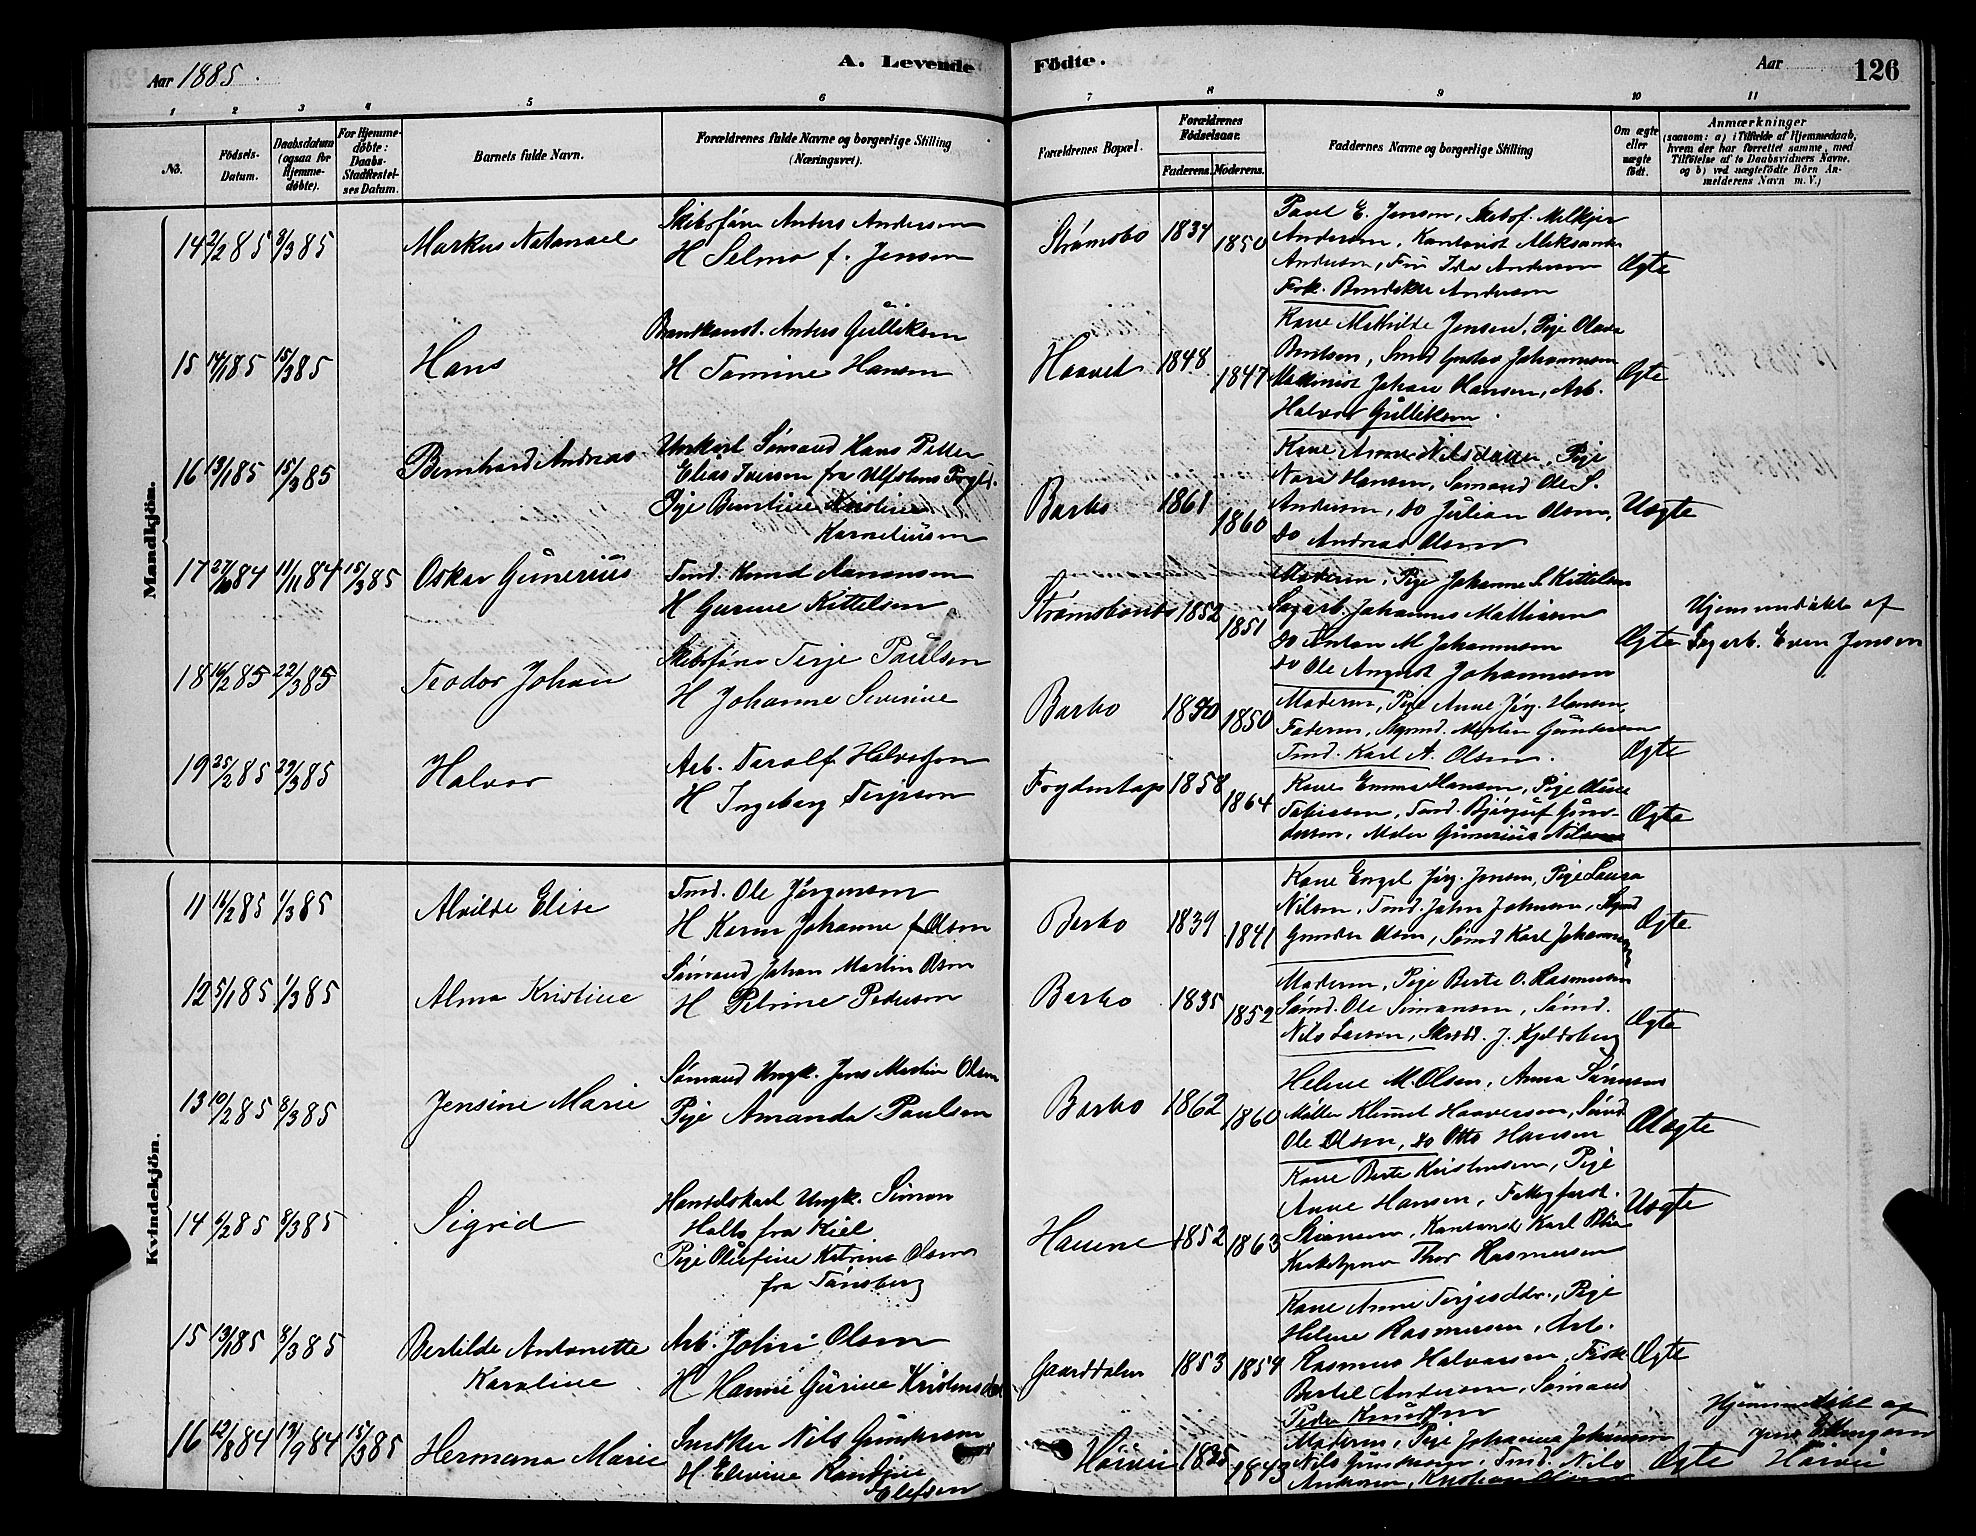 Aar 1885.
A. Levende Födte.
Aar
126
1 2 3 4 5 6 7 8 9 10 11
No.
Födsels-Datum.
Daabsdatum (ogsaa for Hjemme-döbte).
For Hjemme-döbte: Daabs-Stadfæstel-ses Datum.
Barnets fulde Navn.
Forældrenes fulde Navne og borgerlige Stilling (Næringsvei).
Forældrenes Bopæl.
Forældrenes Födselsaar.
Faderens. Moderens.
Faddernes Navne og borgerlige Stilling
Om ægte eller uægte födt.
Anmærkninger
(saasom: a) i Tilfælde af Hjemmedaab, hvem der har forrettet samme, med Tilföielse af to Daabsvidners Navne, og b) ved uægtefödte Börn An-melderens Navn m. V.)
Mandkjön.
14 2/2 85 8/3 85 Markus Natanael
Skibsfører Anders Andersen
H Selma f. Jensen
Strømsbo 1834 1850
Paul E. Jensen, Skibsf. Melkjer
Andersen, Aleksander
Andersen, Frü Ida Andersen
Frk. Bendikke Andersen
Ægte
15 14/1 85 15/3 85 Hans
Anders Gülliksen
H Tomine Hansen
Haaved 1848 1847
Kone Mathilde Jensen, Pige Olava
Berntsen, Smed Gustav Johannesen
Maskinist Johan Hansen, Arb.
Halvor Gülliksen
Ægte
16 13/1 85 15/3 85 Bernhard Andreas
Ungkarl Sømand Hans Petter
Elias Iversen fra
Pige Berntine Kristine
Korneliüsen
Barbo 1861 1860
Kone Anne Nilsdatter, Pige
Nora Hansen, Sømand Ole S.
Andersen, do Julian Olsen,
do Andreas Olsen
Uægte
17 27/10 84 11/11 84 15/3 85 Oskar Günerius
Tmd. Knud Aanonsen
H Gurine Kittelsen
Strømsbo 1852 1851
Moderen, Pige Johanne S. Kittelsen
Sagarb. Johannes Mathisen
do Anton M Johannesen
do Ole August Johannesen
Ægte
Hjemmedöbt af
Sagarb. Even Jensen
18 16/2 85 22/3 85 Teodor Johan
Skibsfører Terje Paulsen
H Johanne Severine
Barbo 1850 1850
Moderen, Pige Anne Jörg. Hansen,
Faderen, Martin Gündersen
Tmd. Karl A. Olsen.
Ægte
19 25/2 85 29/3 85 Halvor
Arb. Tarolf Halvorsen
H Ingeborg Terjesen
1858 1864
Kone Emma Hansen, Pige Oline
Tobiasen, Tmd. Gün-
dersen, Maler Günerius Nilsen
Ægte
Kvindekjön.
11 16/2 85 1/3 85 Alvilde Elise
Tmd. Ole Jörgensen
H Karen Johanne f Olsen
Barbo 1839 1841
Kone Engel Jörg. Jensen, Pige Laura
Nilsen, Tmd. John Johnsen,
Gunder Olsen, Sømd Karl Johannesen
Ægte
12 5/1 85 1/3 85 Alma Kristine
Sømand Johan Martin Olsen
H Petrine Pedersen
Barbo 1835 1852
Moderen, Pige Berte O. Rasmussen
Sømd. Ole Simonsen, Sømd.
Nils Larsen, J. Kjeldsberg
Ægte
13 10/2 85 8/3 85 Jensine Marie
Sømand Ungk. Jens Martin Olsen
Pige Amanda Paulsen
Barbo 1862 1860
Helene M. Olsen, Anna Simonsen
Møller Klemet Haaversen, Sømd
Ole Olsen, do Otto Hansen
Uægte
14 6/2 85 8/3 85 Sigrid
Handelskarl Ungk. Simon
Holts fra Kiel
Pige Olüfine Katrine Olsen
fra Tönsberg
Havene 1852 1863
Kone Berte Kristensen, Pige
Anne Hansen,
Karl Blie
Thor Rasmussen
Uægte
15 13/1 85 8/3 85 Bertilde Antonette
Karoline
Arb. John Olsen
H Hanne Gürine Kristensdat
Gaarddalen 1853 1854
Kone Anne Terjesddr., Pige
Helene Rasmussen, Arb.
Rasmus Halvorsen, Fisk.
Bertel Andersen, Sømand
Peder Knudsen
Ægte
16 12/8 84 13/9 84 15/3 85 Hermana Marie
Snedker Nils Gündersen
H Elevine
Olefsen
1835 1843
Moderen, Pige Johanna Johansen
Nils Gundersen, Tmd. Nils
Andersen, Kristian Olsen
Ægte
Hjemmedöbt af
Jens Ellingsen